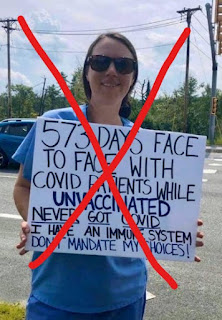 573 DAYS FACE
TO FACE WITH
COVID PATIENTS WHILE
UNVACCINATED
NEVER GOT COVID
I HAVE AN IMMUNE SYSTEM
DON'T MANDATE MY CHOICES!